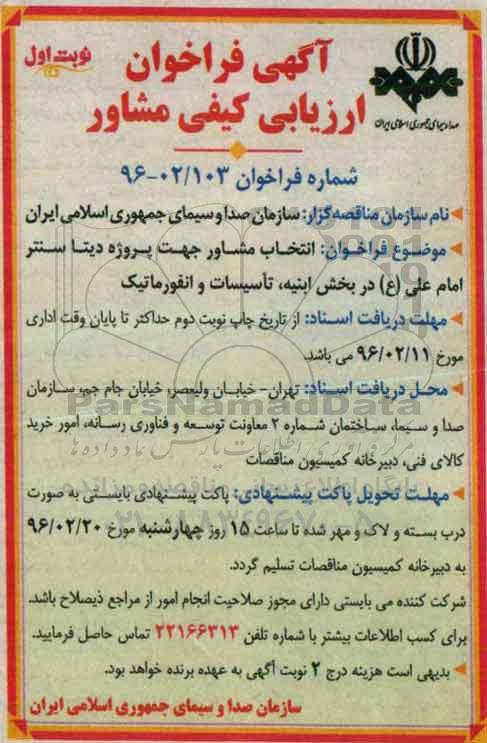 نوبت اول
آگهی فراخوان
ارزیابی کیفی مشاور
صدا و سیمای جمهوری اسلامی ایران
شماره فراخوان ۹۶-۰۲/۱۰۳
نام سازمان مناقصه گزار: سازمان صدا و سیمای جمهوری اسلامی ایران
موضوع فراخوان: انتخاب مشاور جهت پروژه دیتا سنتر
امام علی (ع) در بخش ابنیه، تأسیسات و انفورماتیک
مهلت دریافت اسناد: از تاریخ چاپ نوبت دوم حداکثر تا پایان وقت اداری
مورخ ۹۶/۰۲/۱۱ می باشد.
محل دریافت اسناد: تهران- خیابان ولیعصر، خیابان جام جم، سازمان
صدا و سیما، ساختمان شماره ۲ معاونت توسعه و فناوری رسانه، امور خرید
کالای فنی، دبیرخانه کمیسیون مناقصات
مهلت تحویل پاکت پیشنهادی: پاکت پیشنهادی بایستی به صورت
درب بسته و لاک و مهر شده تا ساعت ۱۵ روز چهارشنبه مورخ ۹۶/۰۲/۲۰
به دبیرخانه کمیسیون مناقصات تسلیم گردد.
شرکت کننده می بایستی دارای مجوز صلاحیت انجام امور از مراجع ذیصلاح باشد.
برای کسب اطلاعات بیشتر با شماره تلفن ۲۲۱۶۶۳۱۳ تماس حاصل فرمایید.
بدیهی است هزینه درج ۲ نوبت آگهی به عهده برنده خواهد بود.
سازمان صدا و سیمای جمهوری اسلامی ایران
ParsNamadData